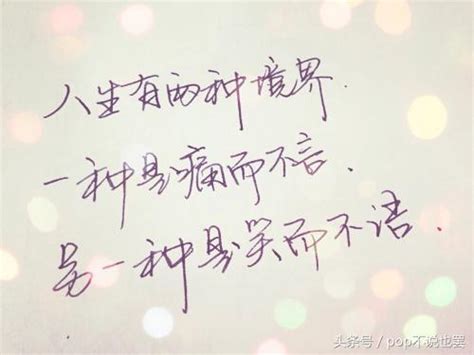 人生有两种境界.
一种是痛而不言.
另一种是笑而不语.
头条号/pop不说也罢